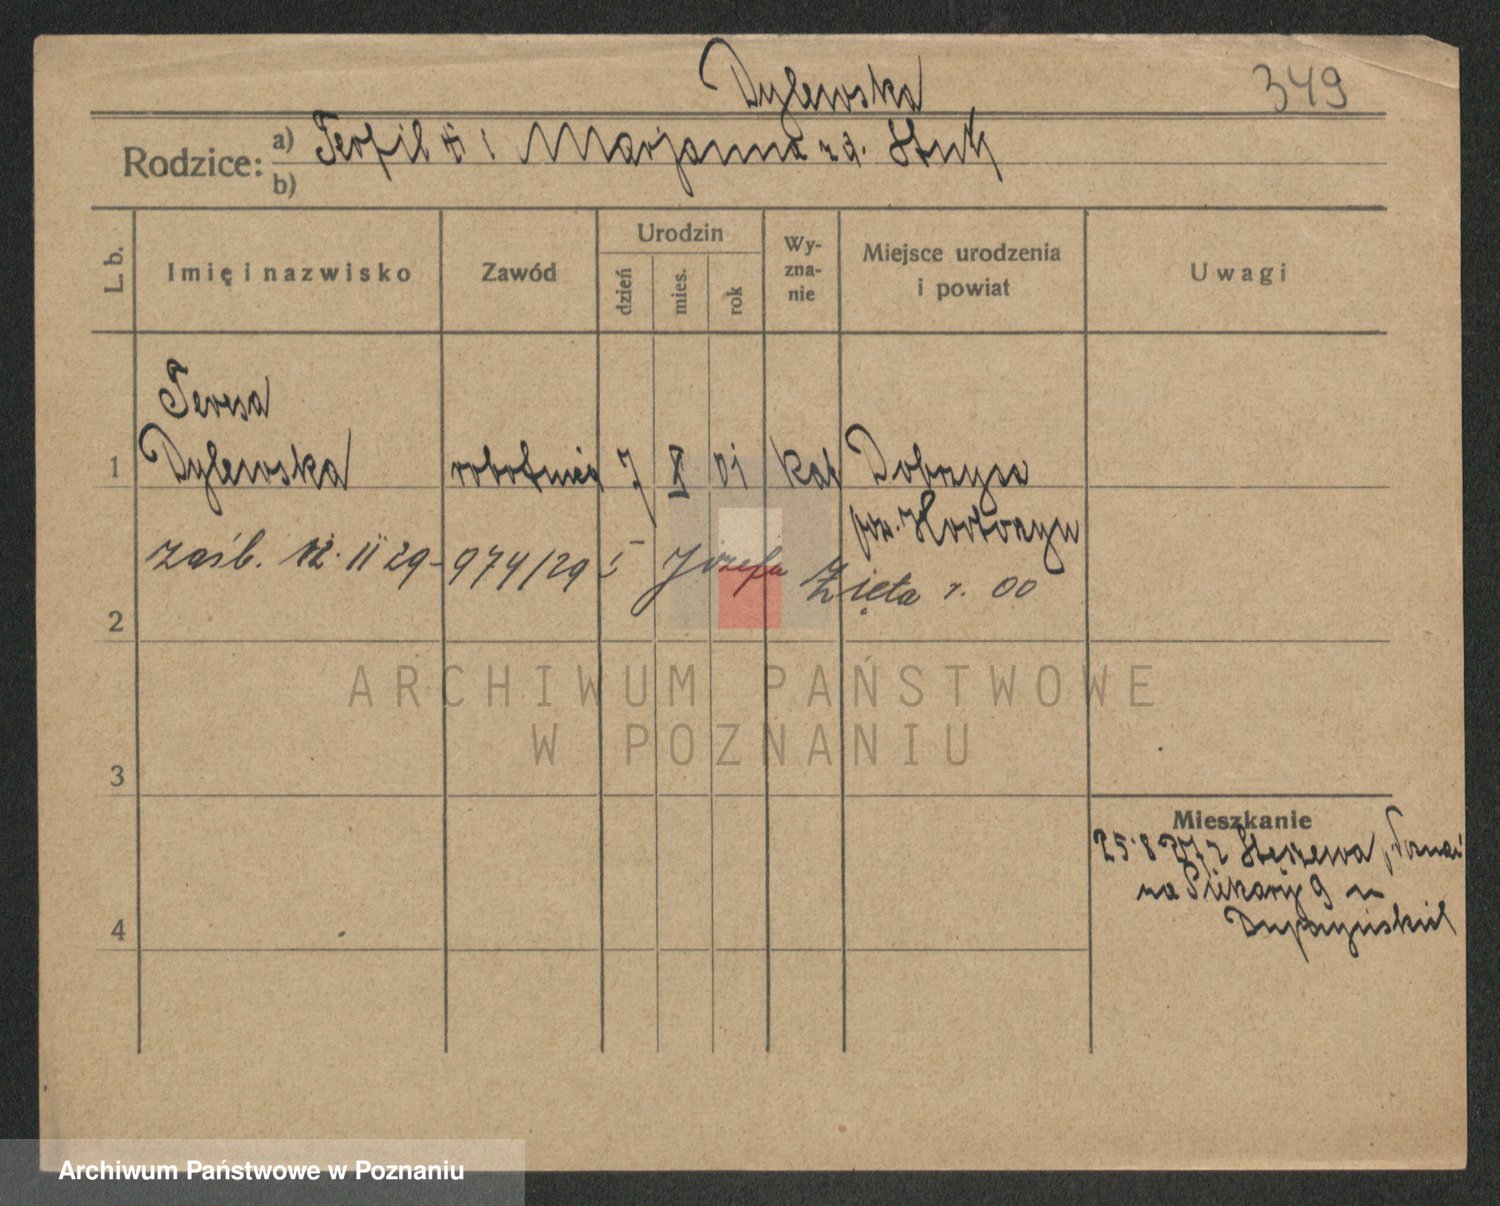 Dylewska 349
Rodzice: a) Teofil i Marjanna zd.
b)
L. b. Imię i nazwisko Zawód Urodzin dzień mies. rok Wyznanie Miejsce urodzenia i powiat Uwagi
Teresa
1 Dylewska robotnica 7 X 01 kat Dobrzyca
pow.
zaśb. 12. II 29 - 974/29 Józefa Zięta r. 00
2
ARCHIWUM PAŃSTWOWE
W POZNANIU
3
Mieszkanie
25.8 27 z Stęszewa p. Poznań
na Piekary 9 u
4
Archiwum Państwowe w Poznaniu